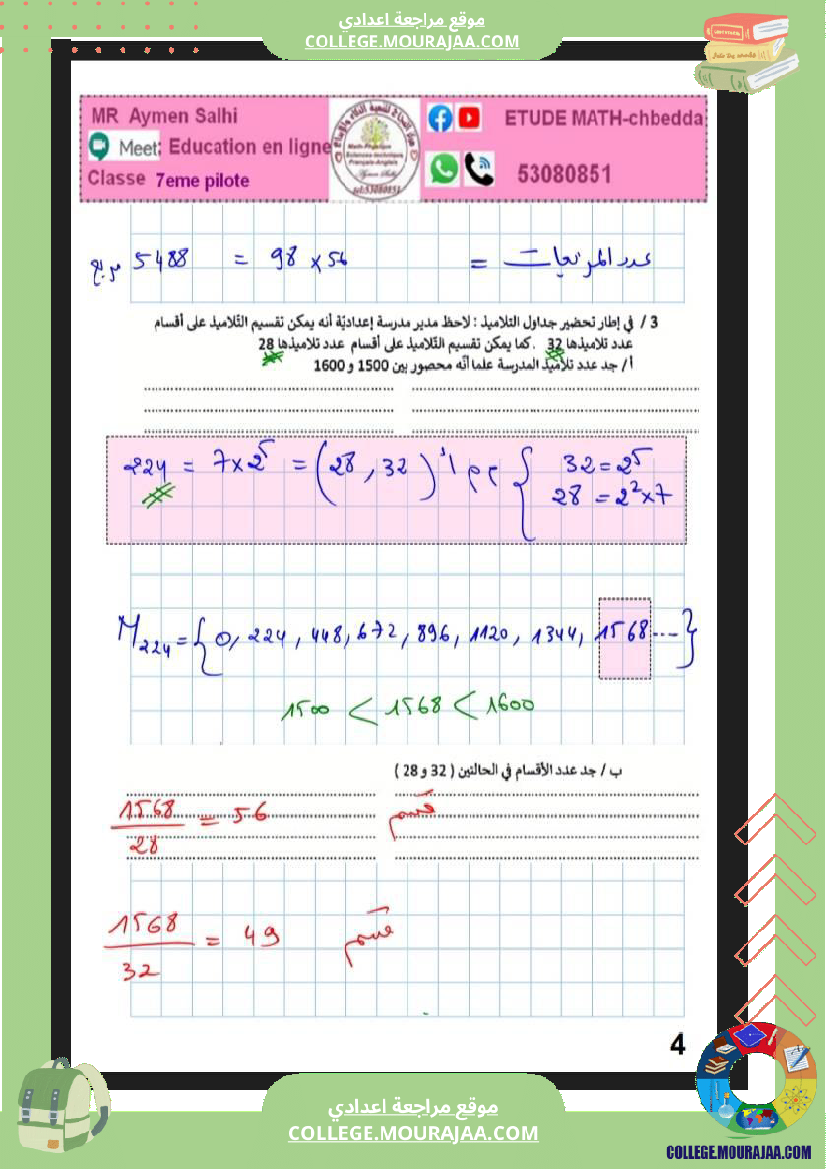 موقع مراجعة اعدادي
COLLEGE.MOURAJAA.COM
MR Aymen Salhi
Meet: Education en ligne
Classe 7eme pilote
ETUDE MATH-chbedda
53080851
عدد المربعات = 56 × 98 = 5488 مربع
3 / في إطار تحضير جداول التلاميذ : لاحظ مدير مدرسة إعداديّة أنه يمكن تقسيم التّلاميذ على أقسام
عدد تلاميذها 32 . كما يمكن تقسيم التّلاميذ على أقسام عدد تلاميذها 28
أ/ جد عدد تلاميذ المدرسة علما أنّه محصور بين 1500 و 1600
32 = 2⁵
28 = 2² × 7
م م أ (28 , 32) = 7 × 2⁵ = 224
M₂₂₄ = {0, 224, 448, 672, 896, 1120, 1344, 1568 ....}
1500 < 1568 < 1600
ب / جد عدد الأقسام في الحالتين ( 32 و 28 )
1568/28 = 56 قسم
1568/32 = 49 قسم
4
موقع مراجعة اعدادي
COLLEGE.MOURAJAA.COM
COLLEGE.MOURAJAA.COM